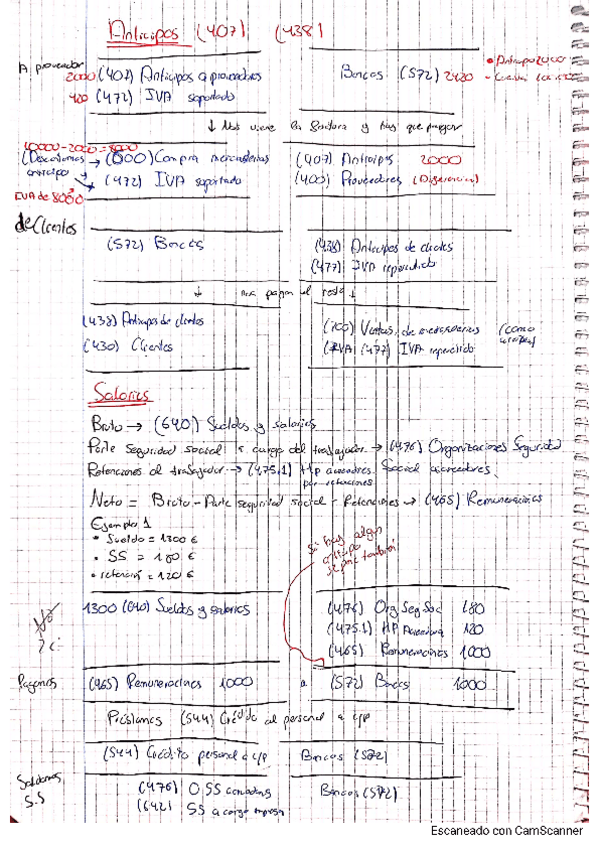 Anticipos (407) (438)
A proveedor
2000 (407) Anticipos a proveedores
Bancos (572) 2420
• Anticipo 2000
420 (472) IVA soportado
↓ Nos viene la factura y hay que pagar
10000 - 2000 = 8000
(Descontamos anticipo → (600) Compra mercaderías
(407) Anticipos 2000
(472) IVA soportado
(400) Proveedores (Diferencia)
IVA de 8000
de Clientes
(572) Bancos
(438) Anticipos de clientes
(477) IVA repercutido
↓ nos pagan el resto ↓
(438) Anticipos de clientes
(700) Ventas de mercaderías (como
(430) Clientes
(IVA) (477) IVA repercutido
Salarios
Bruto → (640) Sueldos y salarios
Parte seguridad social a cargo del trabajador → (476) Organizaciones Seguridad
Social acreedores
Retenciones al trabajador → (475.1) Hp acreedores.
por retenciones
Neto = Bruto - Parte seguridad social - Retenciones → (465) Remuneraciones
Ejemplo 1
• Sueldo = 1300 €
• SS = 180 €
• retención = 120 €
Si hay algun
anticipo
se pone también
1300 (640) Sueldos y salarios
(476) Org Seg Soc 180
(475.1) HP Acreedora 120
(465) Remuneraciones 1000
Pagamos
(465) Remuneraciones 1000
a (572) Bancos 1000
Préstamos (544) Crédito al personal a c/p
(544) Crédito personal a c/p
Bancos (572)
Saldamos
S.S
(476) O SS
Bancos (572)
(642) SS a cargo empresa
Escaneado con CamScanner